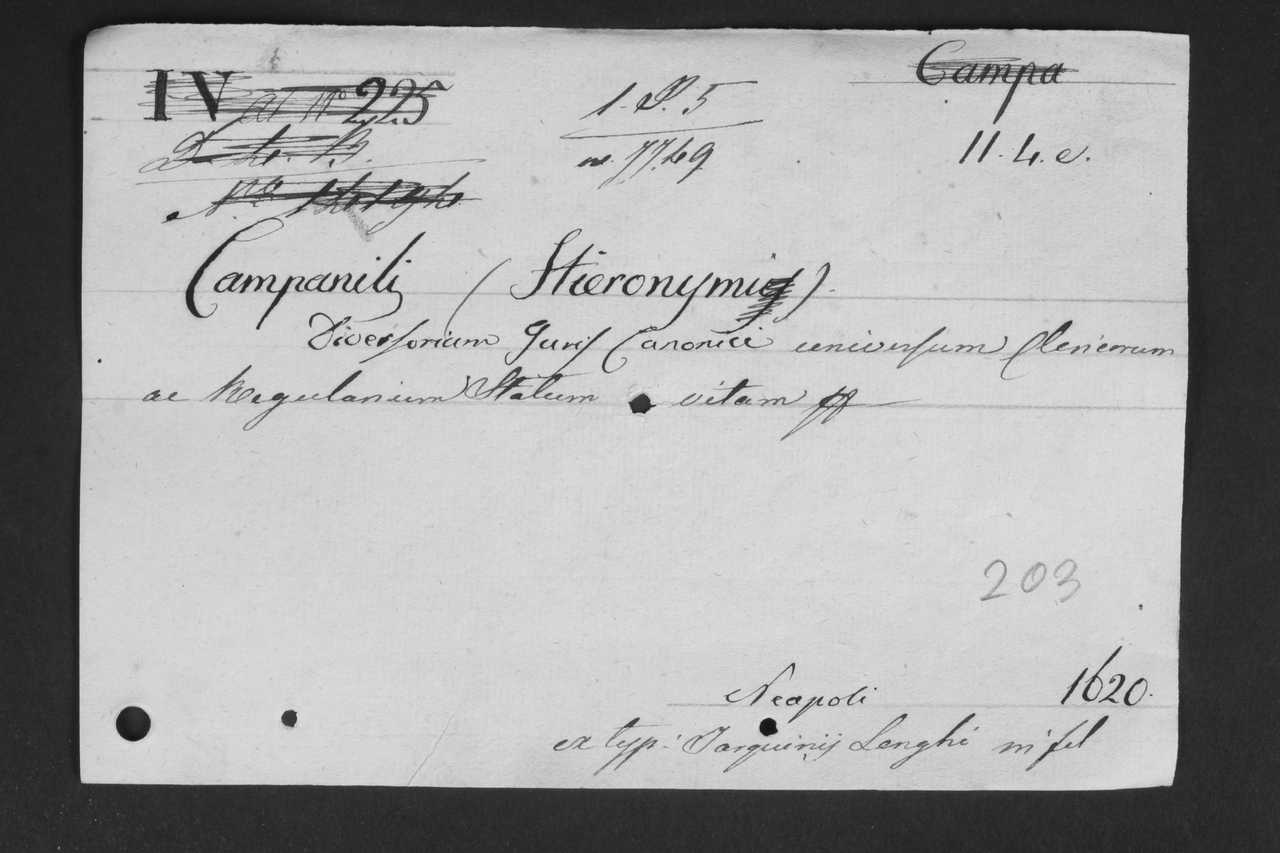 IV 225
Campa
1. P. 5
n. 7749
11. 4. e.
Campanili (Hieronymi).
Diversorium Juris Canonici universum Clericorum
ac Regularium Statum vitam
203
Neapoli 1620.
ex typ: Tarquinij Longhi in fol